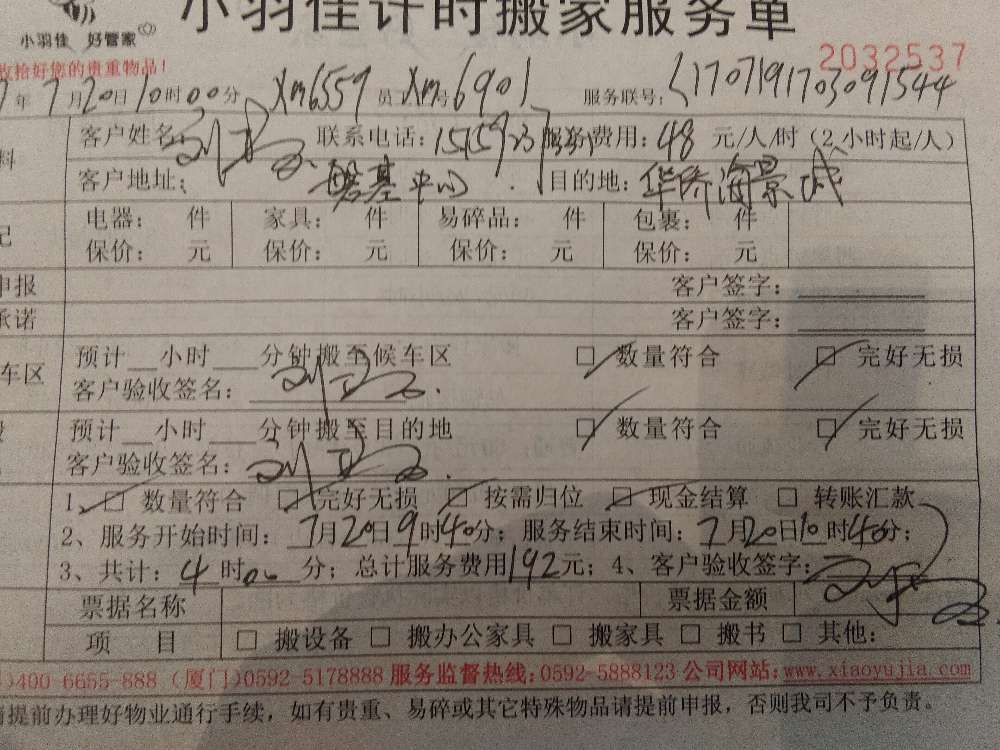 小羽佳计时搬家服务单
小羽佳 好管家
收拾好您的贵重物品！
2032537
年7月20日10时00分 Xm6559 员工号 Xm6901 服务联号：1707191703091544
客户姓名： 联系电话： 服务费用：48 元/人/时（2小时起/人）
客户地址： 磐基中心 目的地：华侨海景城
电器： 件 家具： 件 易碎品： 件 包裹： 件
保价： 元 保价： 元 保价： 元 保价： 元
申报 客户签字：
承诺 客户签字：
预计__小时___分钟搬至候车区 □ 数量符合 □ 完好无损
车区
客户验收签名：
预计__小时___分钟搬至目的地 □ 数量符合 □ 完好无损
客户验收签名：
1、□ 数量符合 □ 完好无损 □ 按需归位 □ 现金结算 □ 转账汇款
2、服务开始时间：7月20日9时40分；服务结束时间：7月20日10时40分；
3、共计：4时00分；总计服务费用192元；4、客户验收签字：
票据名称 票据金额
项 目 □ 搬设备 □ 搬办公家具 □ 搬家具 □ 搬书 □ 其他：
)400-6655-888（厦门)0592-5178888 服务监督热线：0592-5888123 公司网站：www.xiaoyujia.com
请提前办理好物业通行手续，如有贵重、易碎或其它特殊物品请提前申报，否则我司不予负责。